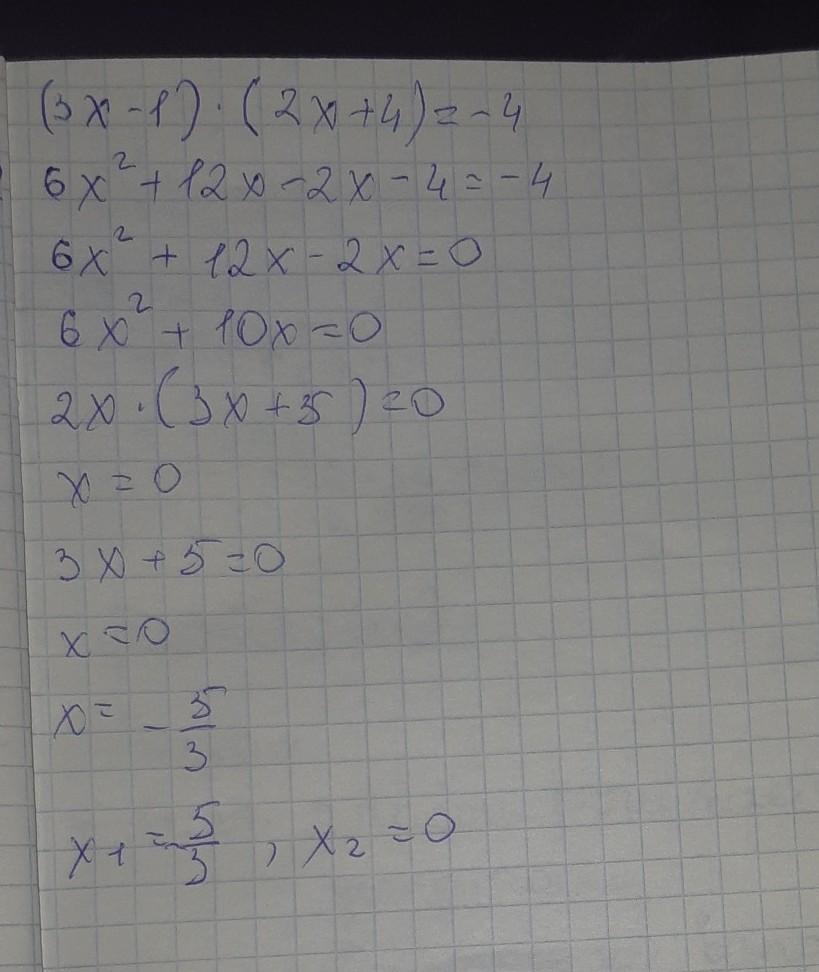 (3x-1)·(2x+4)=-4
6x²+12x-2x-4=-4
6x²+12x-2x=0
6x²+10x=0
2x·(3x+5)=0
x=0
3x+5=0
x=0
x=-5/3
x₁=-5/3, x₂=0